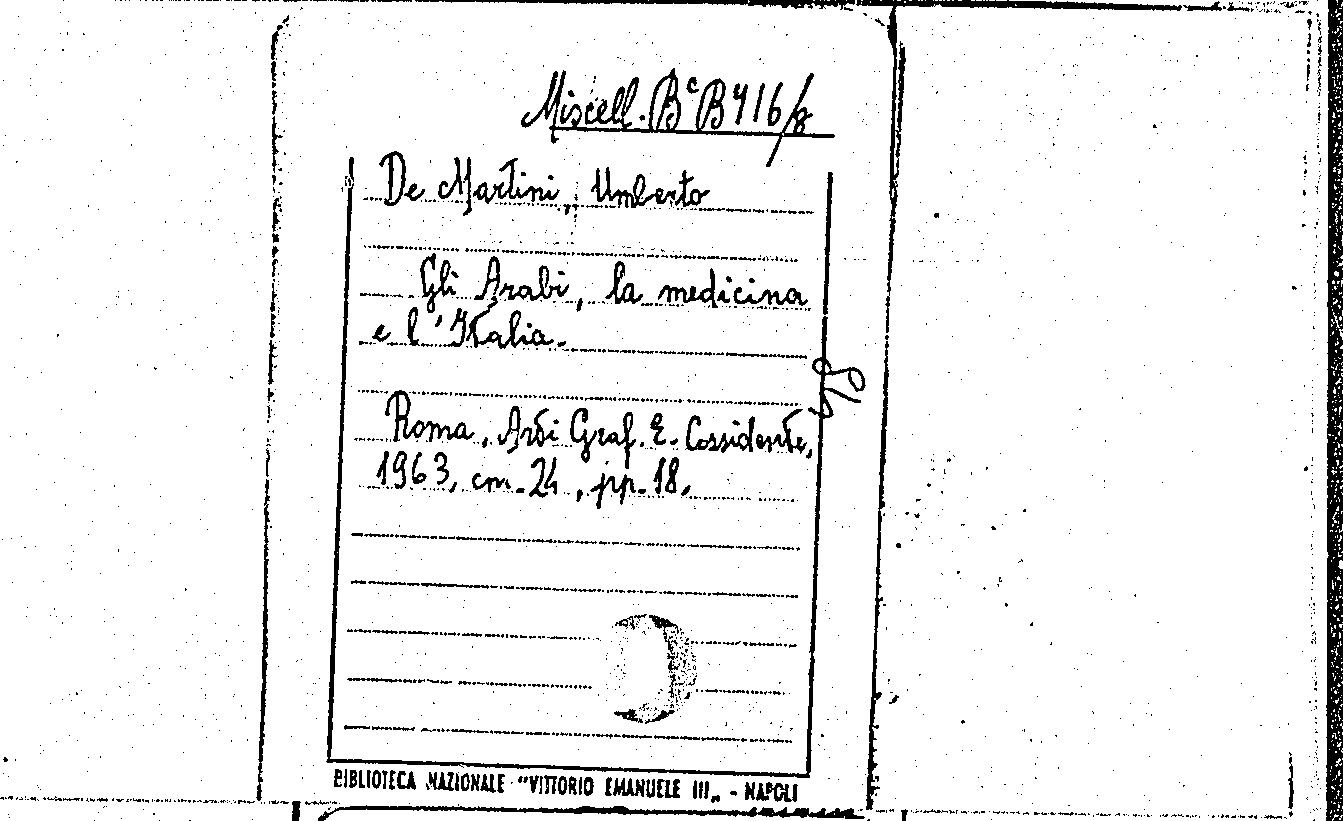 Miscell. Bᶜ B 716/8
De Martini, Umberto
Gli Arabi, la medicina
e l'Italia.
Roma, Arti Graf. E. Cossidente,
1963, cm. 24, pp. 18.
BIBLIOTECA NAZIONALE "VITTORIO EMANUELE III„ - NAPOLI